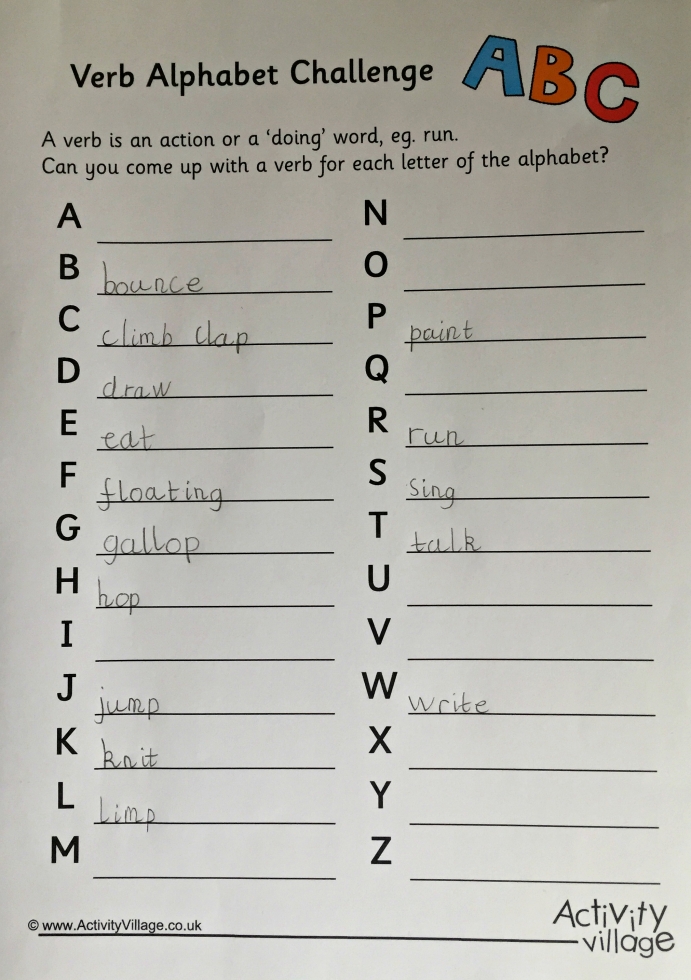 Verb Alphabet Challenge
ABC
A verb is an action or a ‘doing’ word, eg. run.
Can you come up with a verb for each letter of the alphabet?
A
B bounce
C climb clap
D draw
E eat
F floating
G gallop
H hop
I
J jump
K knit
L limp
M
N
O
P paint
Q
R run
S sing
T talk
U
V
W write
X
Y
Z
© www.ActivityVillage.co.uk
Activity
village